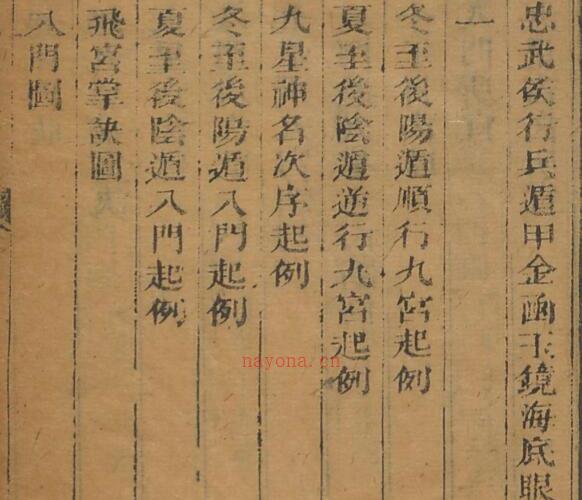 忠武侯行兵遁甲金函玉鏡海底眼
一
冬至後陽遁順行九宮起例
夏至後陰遁逆行九宮起例
九星神名次序起例
冬至後陽遁八門起例
夏至後陰遁八門起例
飛宮掌訣圖
八門圖
nayona.cn